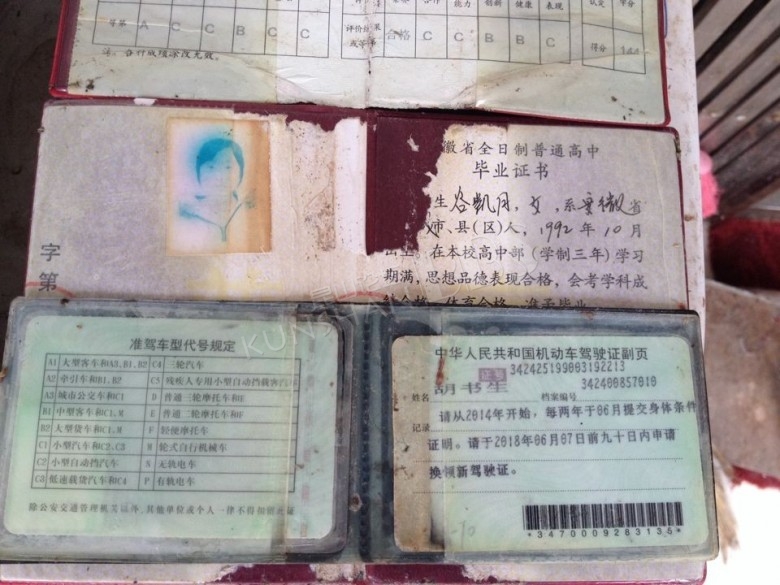 能力 创新 健康 表现 认定 学分
等第 A C C B C C 评价结果或等第 合格 C C B B C 得分 144
注：各种成绩涂改无效。
徽省全日制普通高中
毕业证书
生 凯月，女，系安徽省
市、县（区）人，1992年10月
在本校高中部（学制三年）学习
期满，思想品德表现合格，会考学科成
合格，体育合格，准予毕业
字
第
准驾车型代号规定
A1 大型客车和A3、B1、B2 C4 三轮汽车
A2 牵引车和B1、B2 C5 残疾人专用小型自动挡载客汽车
A3 城市公交车和C1 D 普通三轮摩托车和E
B1 中型客车和C1、M E 普通二轮摩托车和F
B2 大型货车和C1、M F 轻便摩托车
C1 小型汽车和C2、C3 M 轮式自行机械车
C2 小型自动挡汽车 N 无轨电车
C3 低速载货汽车和C4 P 有轨电车
除公安交通管理机关以外，其他单位或个人一律不得扣留此证
中华人民共和国机动车驾驶证副页
证号 342425199003192213
姓名 胡书生 档案编号 342400857010
记录 请从2014年开始，每两年于06月提交身体条件
证明。请于2018年06月07日前九十日内申请
换领新驾驶证。
*3470009283135*